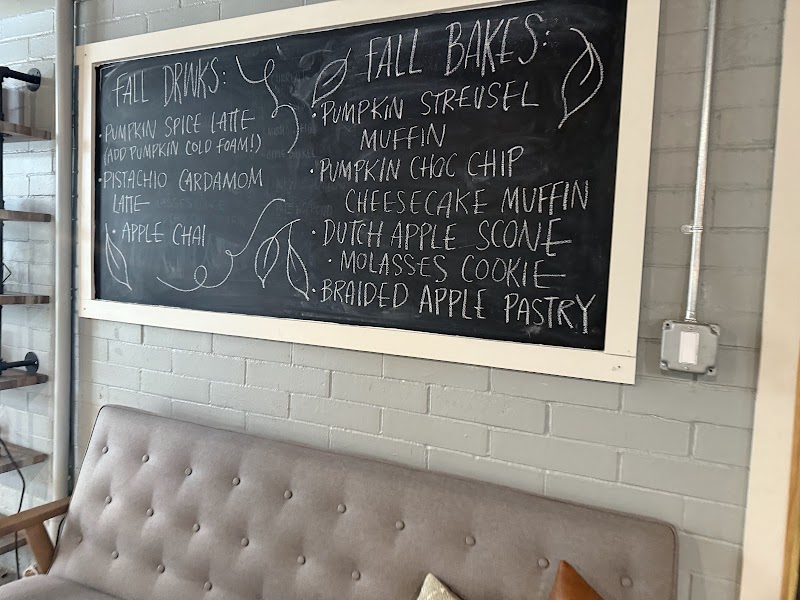 FALL DRINKS:
• PUMPKIN SPICE LATTE
(ADD PUMPKIN COLD FOAM!)
• PISTACHIO CARDAMOM
LATTE
• APPLE CHAI
FALL BAKES:
• PUMPKIN STREUSEL
MUFFIN
• PUMPKIN CHOC CHIP
CHEESECAKE MUFFIN
• DUTCH APPLE SCONE
• MOLASSES COOKIE
• BRAIDED APPLE PASTRY